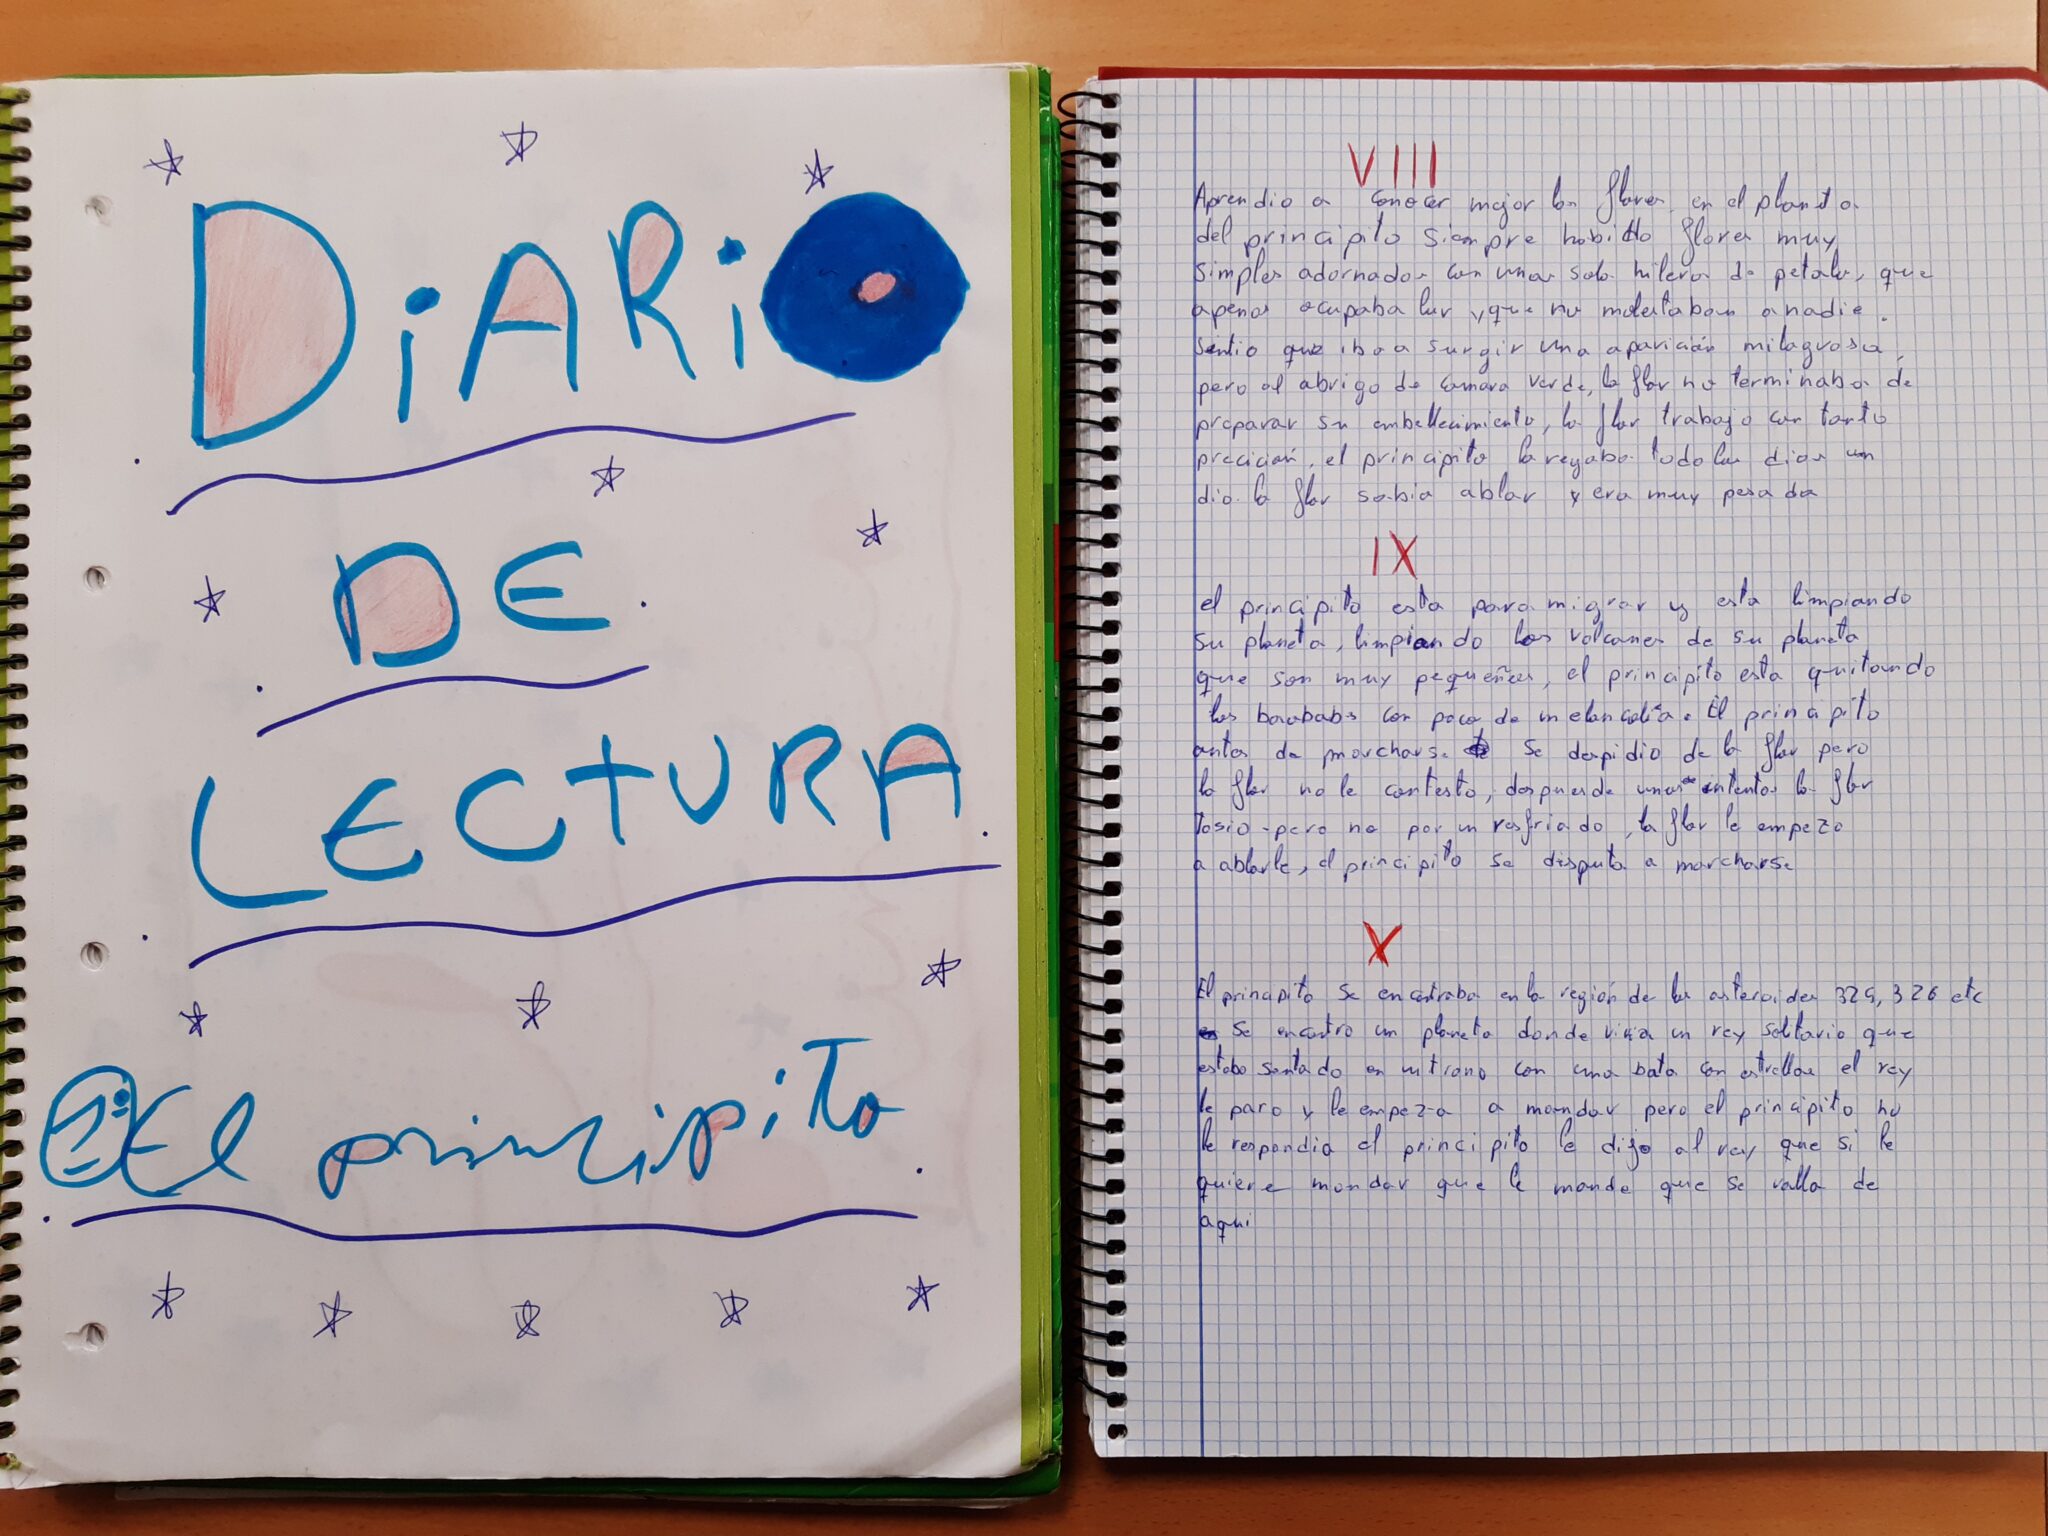 DiARiO
DE
LECTURA
El principito
VIII
Aprendio a conocer mejor las flores, en el planeta
del principito siempre habido flores muy
simples adornadas con unas sola hilera de petalos, que
apenas ocupaba lur y que no molestaban a nadie.
Sentio que iba a surgir una aparición milagrosa,
pero al abrigo de camara verde, la flor no terminaba de
preparar su embellecimiento, la flor trabajo con tanto
precición, el principito la regaba todo los dias un
dia la flor sabia ablar y era muy pesada
IX
el principito esta para migrar y esta limpiando
su planeta, limpiando los volcanes de su planeta
que son muy pequeñes, el principito esta quitando
los baobabs con poco de melancolía. El principito
antes de marcharse se despidio de la flor pero
la flor no le contesto, despues de unos intentos la flor
tosio pero no por un resfriado, la flor le empezo
a ablarle, el principito se disputa a marcharse
X
El principito se encontraba en la región de los asteroides 325, 326 etc
se encontro un planeta donde vivia un rey solitario que
estaba sentado en un trono con una bata con estrellas el rey
le paro y le empeza a mandar pero el principito no
le respondia el principito le dijo al rey que si le
quiere mandar que le mande que se valla de
aqui